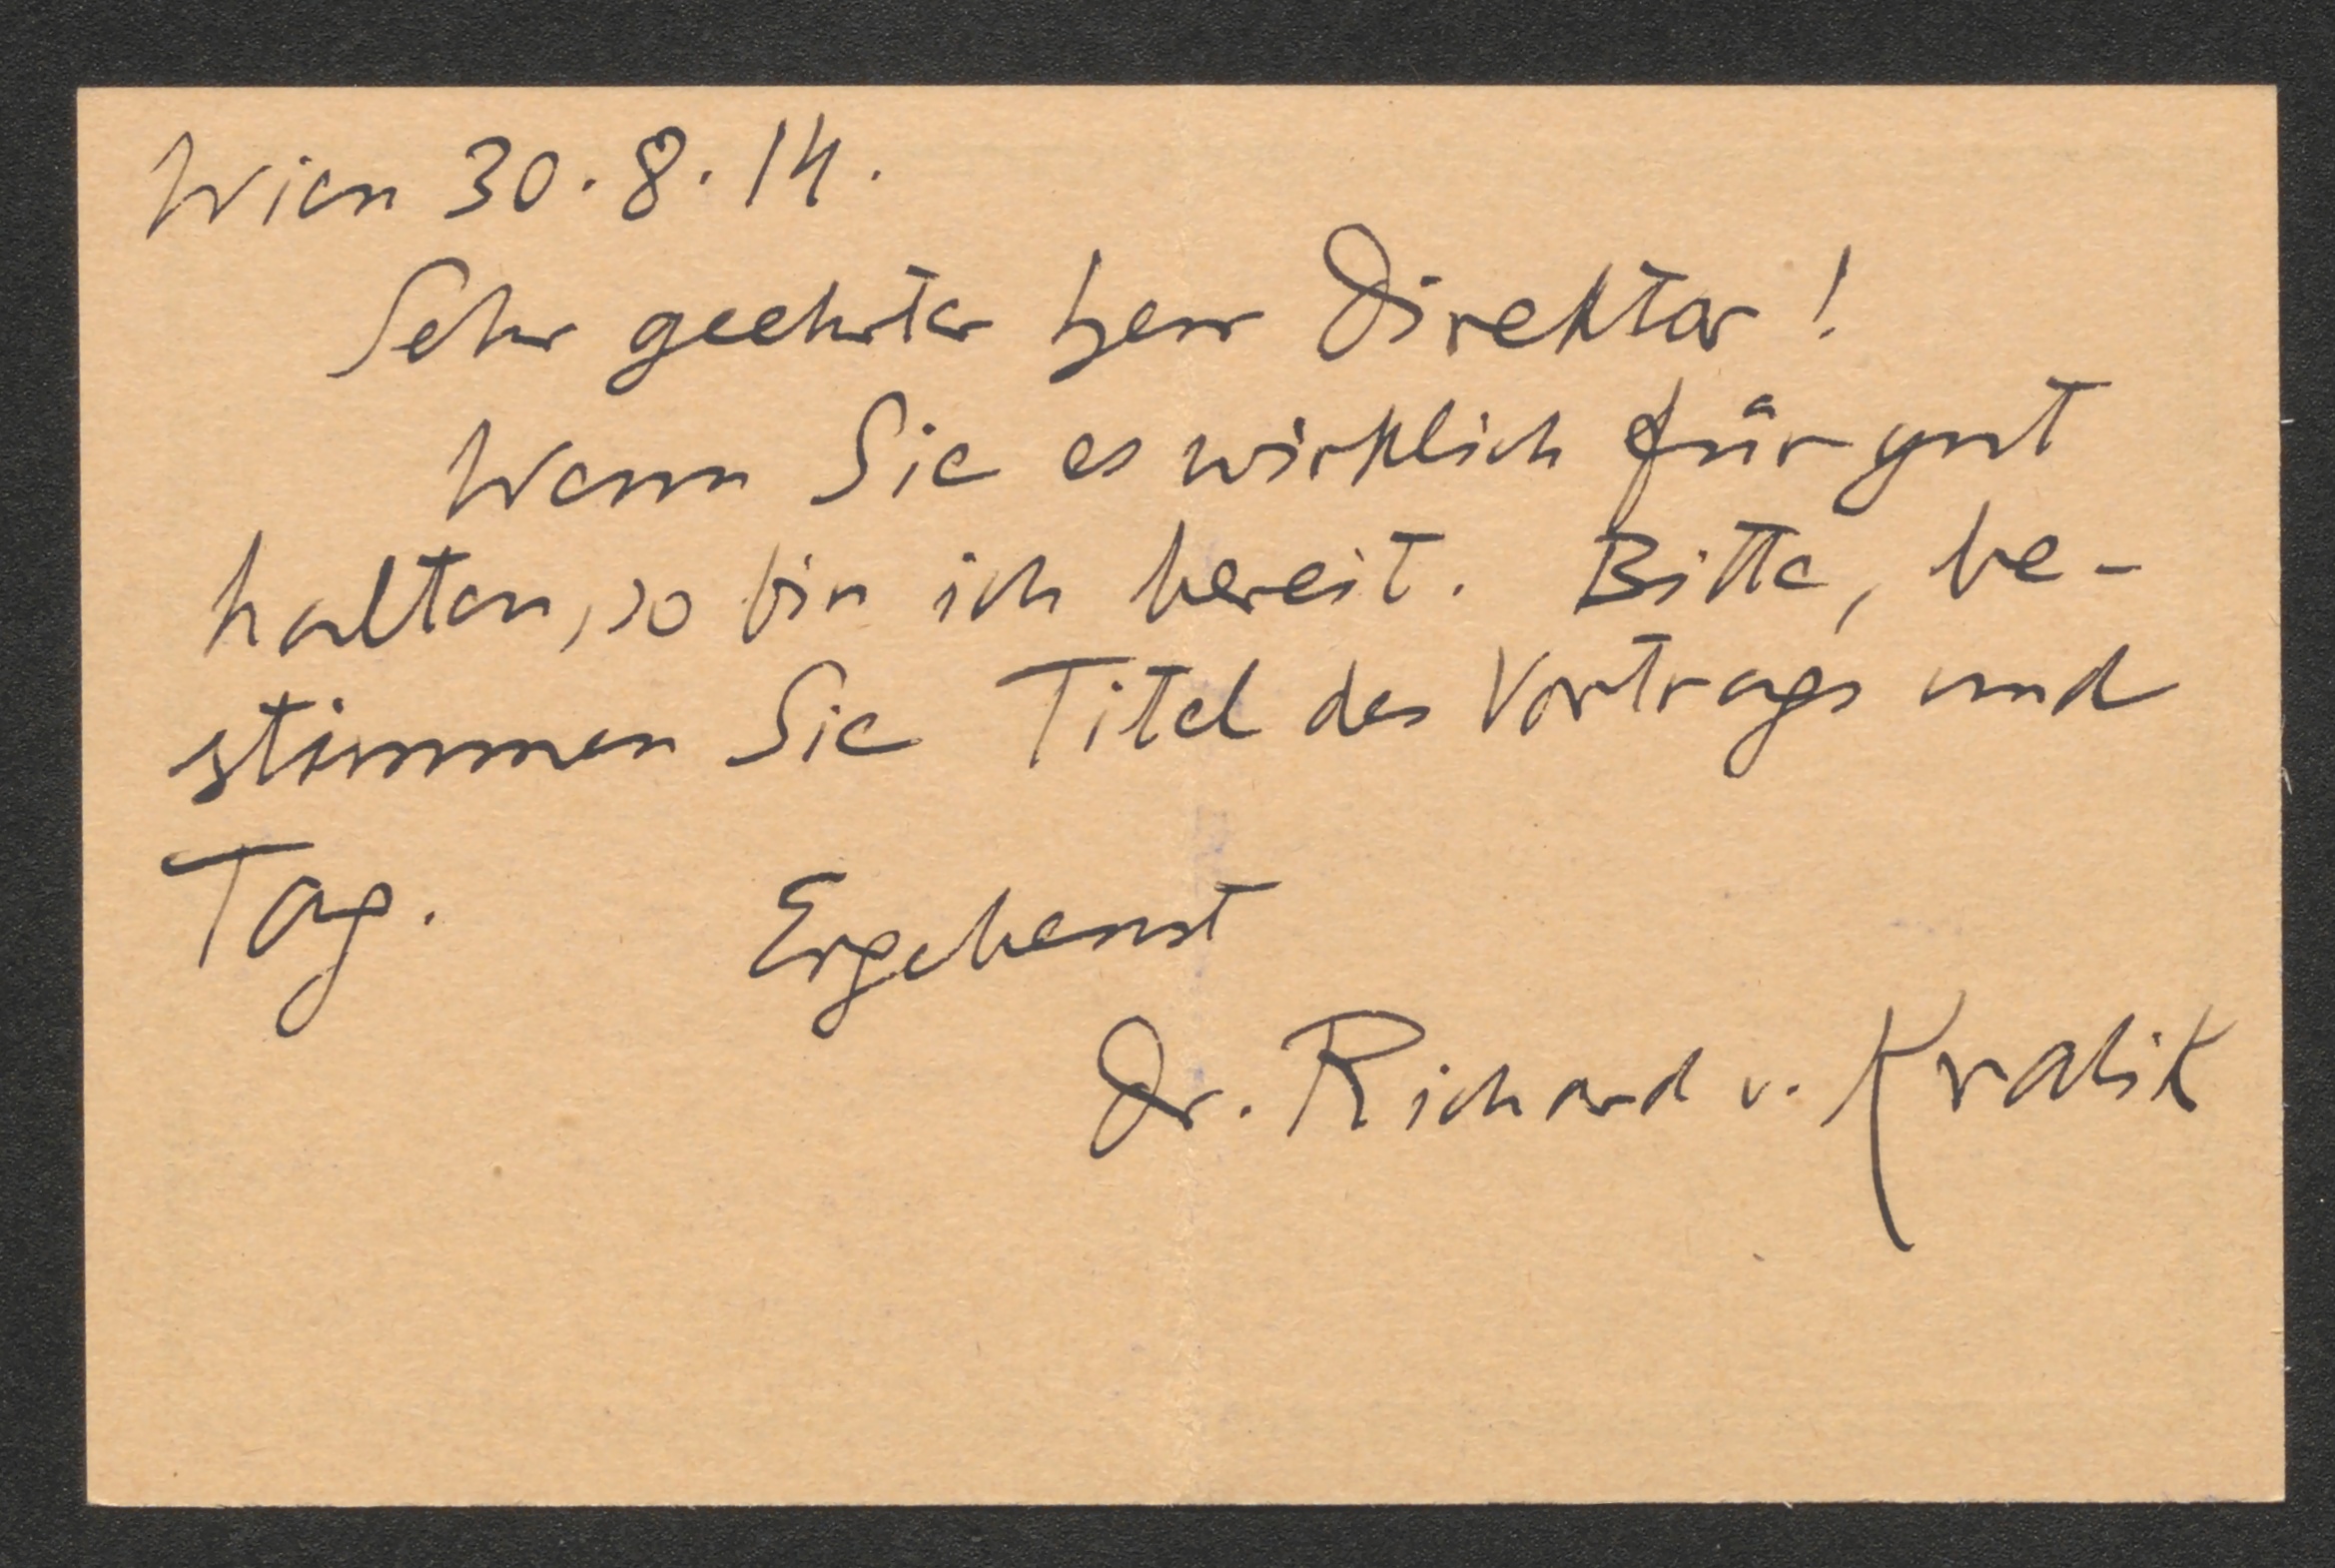 Wien 30. 8. 14.
Sehr geehrter Herr Direktor!
Wenn Sie es wirklich für gut
halten, so bin ich bereit. Bitte, be-
stimmen Sie Titel des Vortrags und
Tag. Ergebenst
Dr. Richard v. Kralik